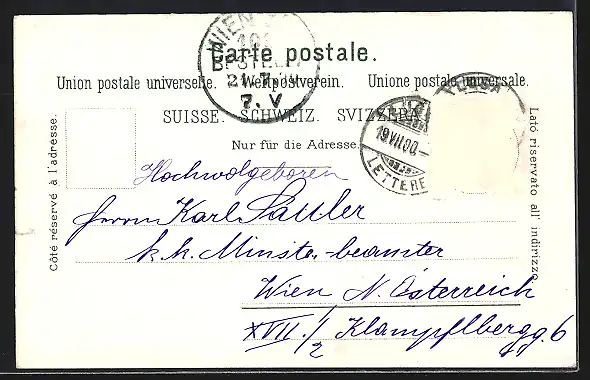 Carte postale.
Union postale universelle. Weltpostverein. Unione postale universale.
SUISSE. SCHWEIZ. SVIZZERA
Nur für die Adresse.
Côté réservé à l'adresse.
Lato riservato all' indirizzo.
WIEN
BESTELLT
7. V
19.VII.00
LETTERE
Hochwolgeboren
Herrn Karl Sattler
k.k. Minist.-beamter
Wien N. Österreich
XVII./2 Klampflbergg. 6